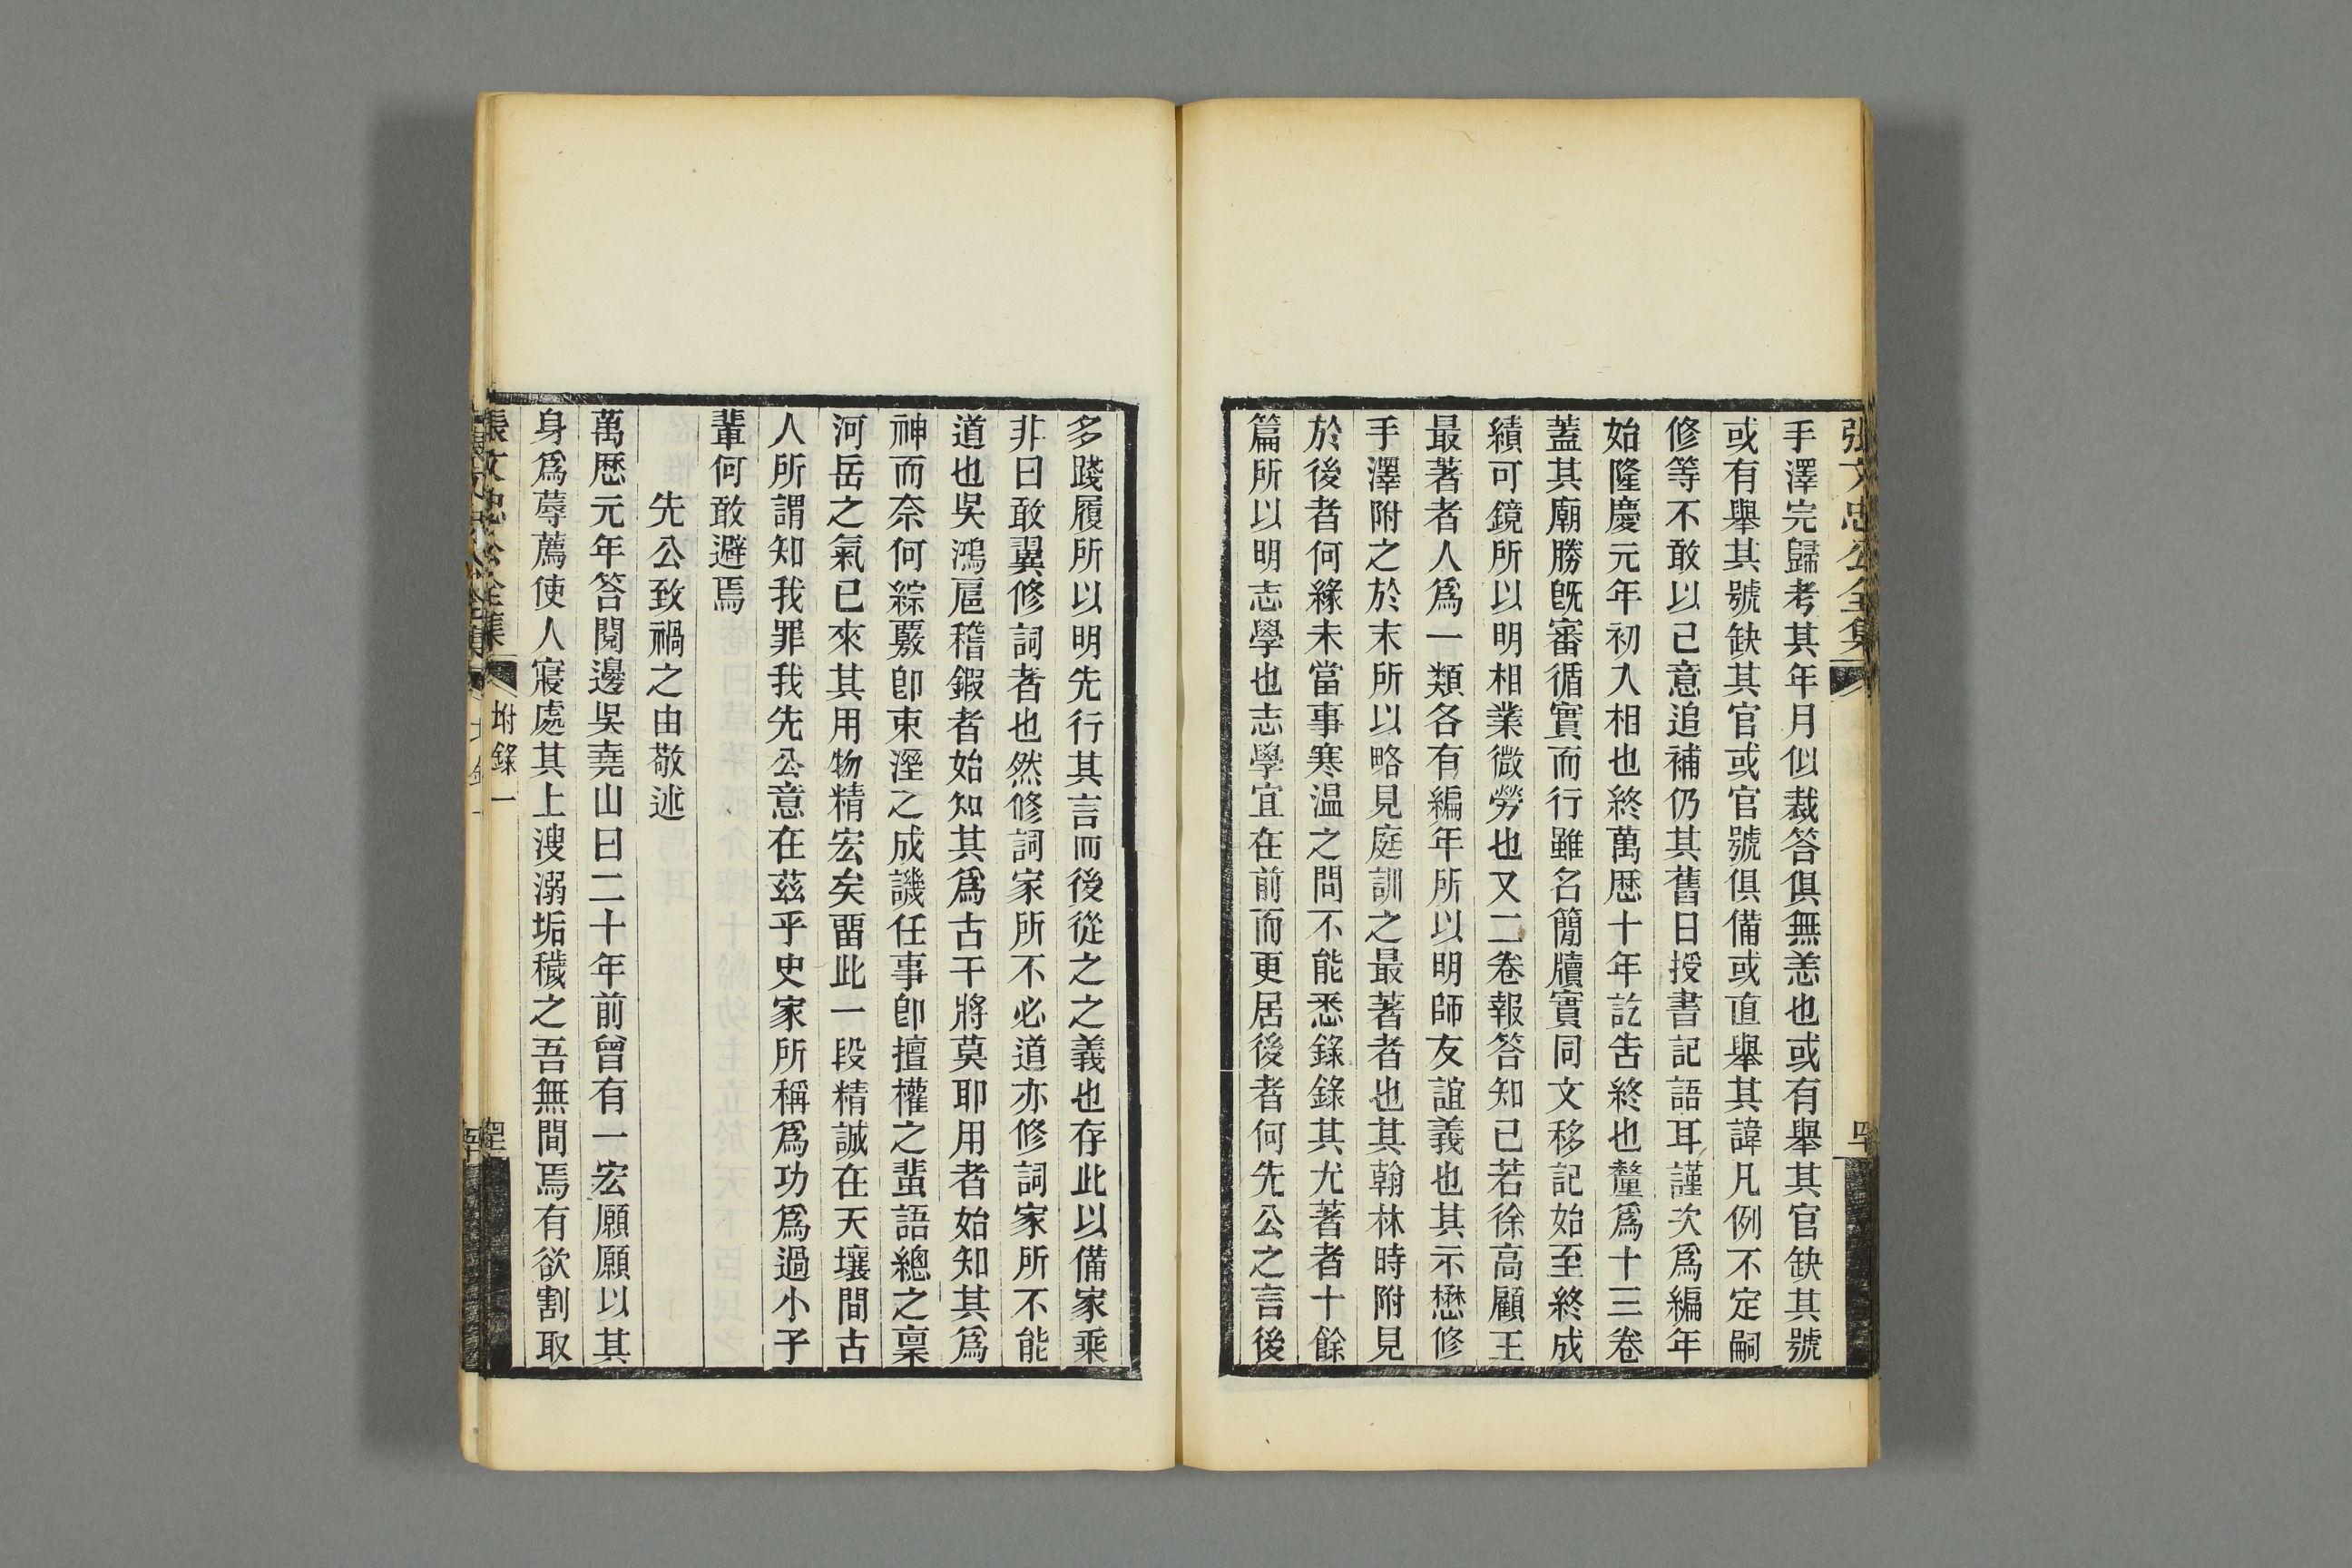 張文忠公全集
手澤完歸考其年月似裁答俱無恙也或有舉其官缺其號
或有舉其號缺其官或官號俱備或直舉其諱凡例不定嗣
修等不敢以己意追補仍其舊日授書記語耳謹次爲編年
始隆慶元年初入相也終萬歷十年訖告終也釐爲十三卷
蓋其廟勝旣審循實而行雖名簡牘實同文移記始至終成
績可鏡所以明相業微勞也又二卷報答知己若徐高顧王
最著者人爲一類各有編年所以明師友誼義也其示懋修
手澤附之於末所以略見庭訓之最著者也其翰林時附見
於後者何緣未當事寒温之問不能悉錄錄其尤著者十餘
篇所以明志學也志學宜在前而更居後者何先公之言後
多踐履所以明先行其言而後從之之義也存此以備家乘
非曰敢翼修詞者也然修詞家所不必道亦修詞家所不能
道也吳鴻扈稽鍜者始知其爲古干將莫耶用者始知其爲
神而奈何綜覈卽束溼之成譏任事卽擅權之蜚語總之稟
河岳之氣已來其用物精宏矣畱此一段精誠在天壤間古
人所謂知我罪我先公意在茲乎史家所稱爲功爲過小子
輩何敢避焉
先公致禍之由敬述
萬歷元年答閱邊吳堯山曰二十年前曾有一宏願願以其
身爲蓐薦使人寢處其上溲溺垢穢之吾無間焉有欲割取
張文忠公全集 坿錄一